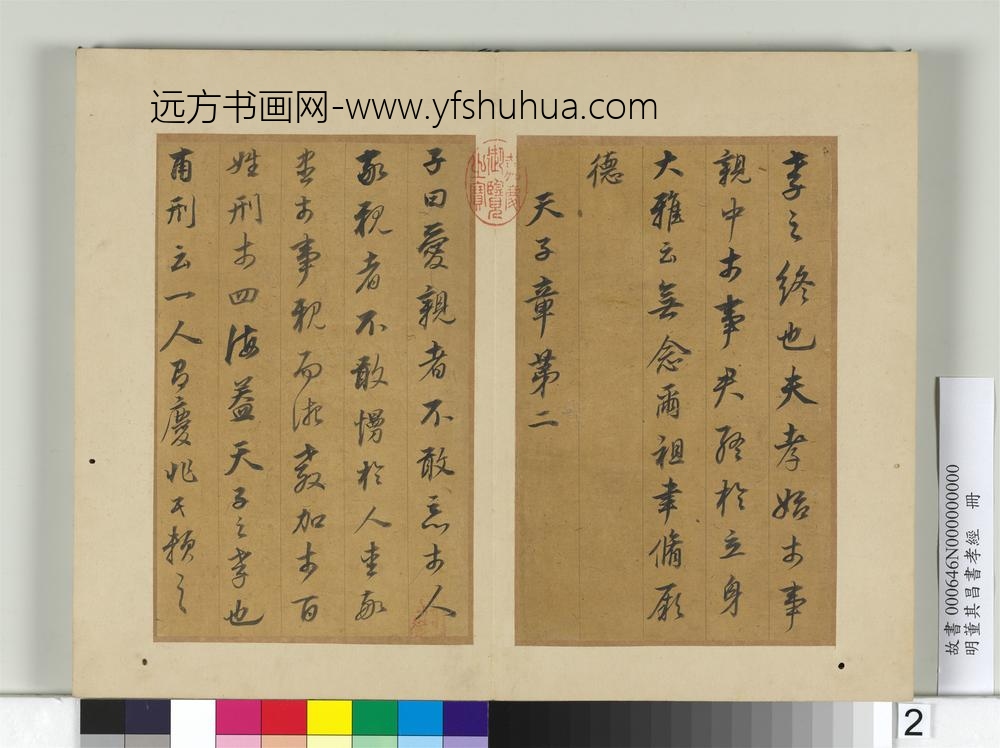 远方书画网-www.yfshuhua.com
孝之終也夫孝始於事
親中於事君終於立身
大雅云無念爾祖聿脩厥
德
天子章第二
嘉慶御覽之寶
子曰愛親者不敢惡於人
敬親者不敢慢於人愛敬
盡於事親而德教加於百
姓刑於四海蓋天子之孝也
甫刑云一人有慶兆民賴之
故書 000646N000000000
明董其昌書孝經 冊
2